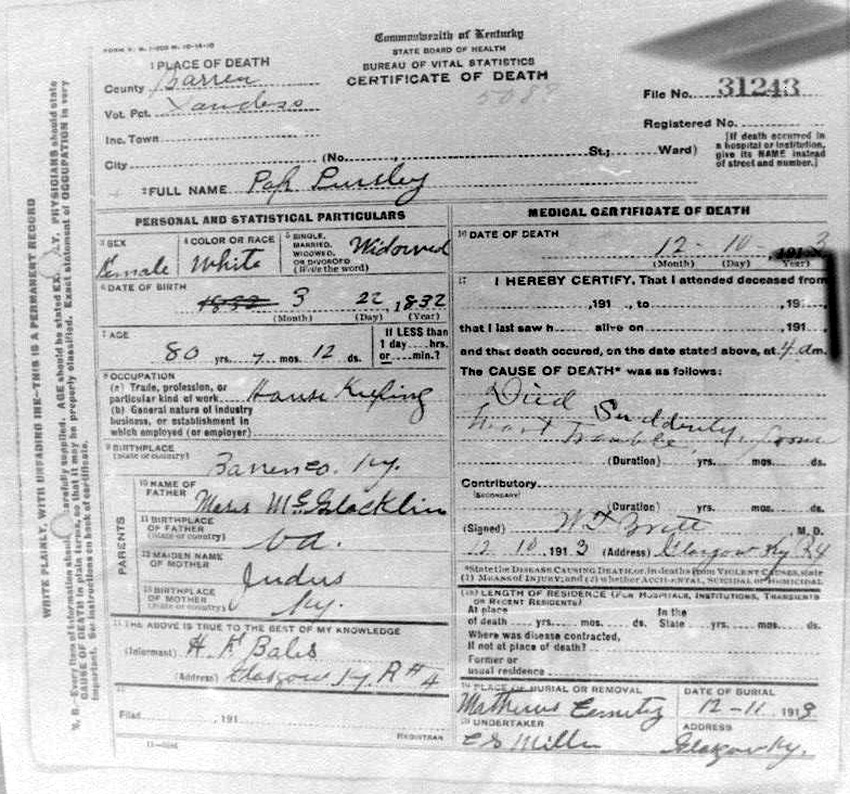 FORM V. S. 1-200 M. 10-14-10
Commonwealth of Kentucky
STATE BOARD OF HEALTH
BUREAU OF VITAL STATISTICS
CERTIFICATE OF DEATH
1 PLACE OF DEATH
County Barren
Vot. Pct.
Inc. Town
City (No. , St.; Ward)
File No. 31243
Registered No.
[If death occurred in a hospital or institution, give its NAME instead of street and number.]
2 FULL NAME Pursley
PERSONAL AND STATISTICAL PARTICULARS
3 SEX Female
4 COLOR OR RACE White
5 SINGLE, MARRIED, WIDOWED, OR DIVORCED (Write the word) Widowed
6 DATE OF BIRTH 3 22, 1832
(Month) (Day) (Year)
7 AGE 80 yrs. 7 mos. 12 ds.
If LESS than 1 day....hrs. or....min.?
8 OCCUPATION
(a) Trade, profession, or particular kind of work House Keeping
(b) General nature of industry business, or establishment in which employed (or employer)
9 BIRTHPLACE (State or country)
Barren co. Ky.
PARENTS
10 NAME OF FATHER McGlocklin
11 BIRTHPLACE OF FATHER (State or country) Va.
12 MAIDEN NAME OF MOTHER
13 BIRTHPLACE OF MOTHER (State or country) Ky.
14 THE ABOVE IS TRUE TO THE BEST OF MY KNOWLEDGE
(Informant) H. K. Bales
(Address) Glasgow Ky. R#4
15
Filed , 191
REGISTRAR
MEDICAL CERTIFICATE OF DEATH
16 DATE OF DEATH
12 - 10 , 1913
(Month) (Day) (Year)
17 I HEREBY CERTIFY, That I attended deceased from
,191 , to ,191
that I last saw h alive on ,191
and that death occured, on the date stated above, at 4 am.
The CAUSE OF DEATH* was as follows:
Died Suddenly
Heart Trouble
(Duration) yrs. mos. ds.
Contributory
(SECONDARY)
(Duration) yrs. mos. ds.
(Signed) Britt M. D.
12 10 , 1913 (Address) Glasgow Ky R4
*State the DISEASE CAUSING DEATH, or, in deaths from VIOLENT CAUSES, state (1) MEANS OF INJURY; and (2) whether ACCIDENTAL, SUICIDAL or HOMICIDAL
18 LENGTH OF RESIDENCE (FOR HOSPITALS, INSTITUTIONS, TRANSIENTS OR RECENT RESIDENTS)
At place of death yrs. mos. ds. In the State yrs. mos. ds.
Where was disease contracted, If not at place of death?
Former or usual residence
19 PLACE OF BURIAL OR REMOVAL
Mathews
DATE OF BURIAL
12-11 1913
20 UNDERTAKER
ADDRESS
Glasgow Ky.
WRITE PLAINLY, WITH UNFADING INK—THIS IS A PERMANENT RECORD
N. B.—Every item of information should be carefully supplied. AGE should be stated EXACTLY. PHYSICIANS should state
CAUSE OF DEATH in plain terms, so that it may be properly classified. Exact statement of OCCUPATION is very
important. See instructions on back of certificate.